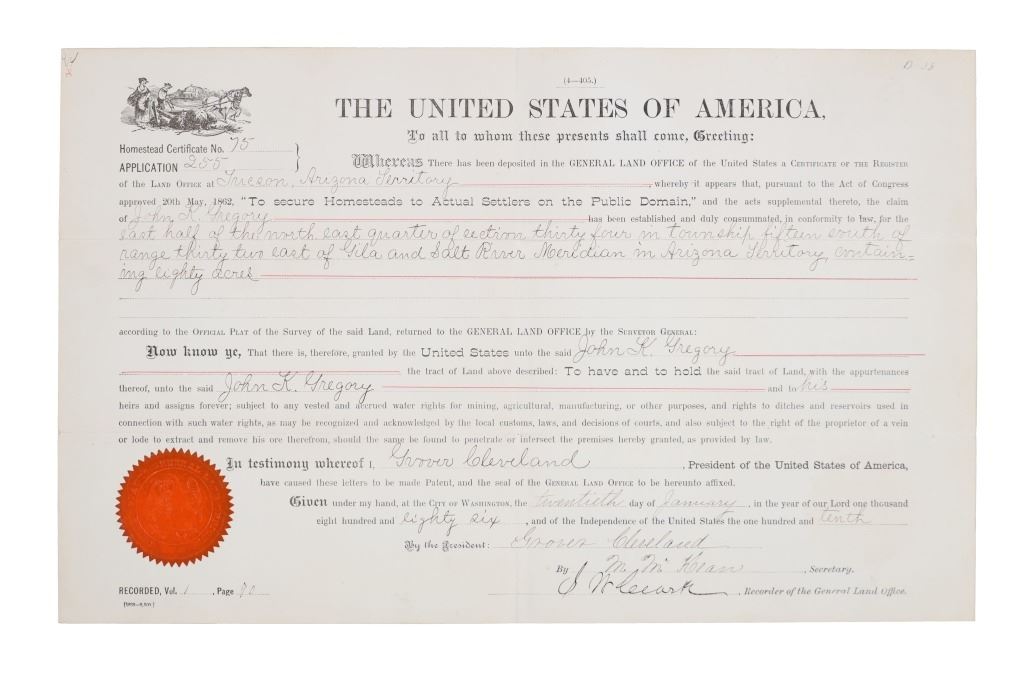 (4—405.)
THE UNITED STATES OF AMERICA,
To all to whom these presents shall come, Greeting:
Homestead Certificate No. 75
APPLICATION 255
Whereas There has been deposited in the GENERAL LAND OFFICE of the United States a CERTIFICATE OF THE REGISTER
of the LAND OFFICE at Tucson, Arizona Territory, whereby it appears that, pursuant to the Act of Congress
approved 20th May, 1862, "To secure Homesteads to Actual Settlers on the Public Domain," and the acts supplemental thereto, the claim
of John K. Gregory has been established and duly consummated, in conformity to law, for the
east half of the north east quarter of section thirty four in township fifteen south of
range thirty two east of Gila and Salt River Meridian in Arizona Territory, contain=
ing eighty acres
according to the OFFICIAL PLAT of the Survey of the said Land, returned to the GENERAL LAND OFFICE by the SURVEYOR GENERAL:
Now know ye, That there is, therefore, granted by the United States unto the said John K. Gregory
the tract of Land above described: To have and to hold the said tract of Land, with the appurtenances
thereof, unto the said John K. Gregory and to his
heirs and assigns forever; subject to any vested and accrued water rights for mining, agricultural, manufacturing, or other purposes, and rights to ditches and reservoirs used in
connection with such water rights, as may be recognized and acknowledged by the local customs, laws, and decisions of courts, and also subject to the right of the proprietor of a vein
or lode to extract and remove his ore therefrom, should the same be found to penetrate or intersect the premises hereby granted, as provided by law.
In testimony whereof I, Grover Cleveland, President of the United States of America,
have caused these letters to be made Patent, and the seal of the GENERAL LAND OFFICE to be hereunto affixed.
Given under my hand, at the CITY OF WASHINGTON, the twentieth day of January, in the year of our Lord one thousand
eight hundred and eighty six, and of the Independence of the United States the one hundred and tenth
By the President: Grover Cleveland
By M. McKean, Secretary.
RECORDED, Vol. 1, Page 70
S W Clark, Recorder of the General Land Office.